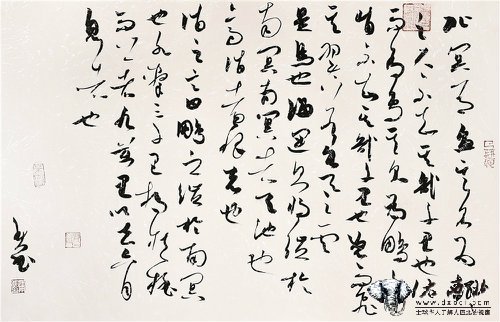 北冥有魚其名為鯤鯤
之大不知其幾千里也化
而為鳥其名為鵬鵬之
背不知其幾千里也怒而飛
其翼若垂天之雲
是鳥也海運則將徙於
南冥南冥者天池也
齊諧者志怪者也
諧之言曰鵬之徙於南冥
也水擊三千里摶扶搖
而上者九萬里以去六月
息者也